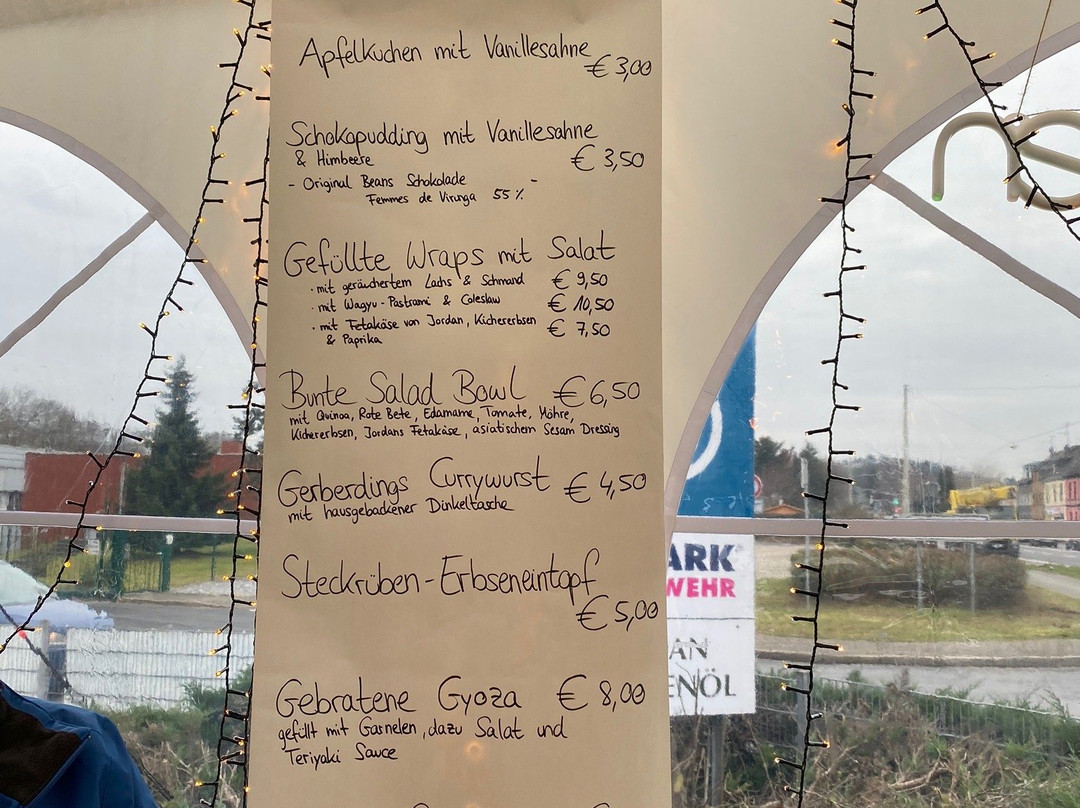 Apfelkuchen mit Vanillesahne
€ 3,00
Schokopudding mit Vanillesahne
& Himbeere € 3,50
- Original Beans Schokolade -
Femmes de Virunga 55 %
Gefüllte Wraps mit Salat
· mit geräuchertem Lachs & Schmand € 9,50
· mit Wagyu-Pastrami & Coleslaw € 10,50
· mit Fetakäse von Jordan, Kichererbsen € 7,50
& Paprika
Bunte Salad Bowl € 6,50
mit Quinoa, Rote Bete, Edamame, Tomate, Möhre,
Kichererbsen, Jordans Fetakäse, asiatischem Sesam Dressing
Gerberdings Currywurst € 4,50
mit hausgebackener Dinkeltasche
Steckrüben-Erbseneintopf
€ 5,00
Gebratene Gyoza € 8,00
gefüllt mit Garnelen, dazu Salat und
Teriyaki Sauce
ARK
WEHR
AN
ENÖL